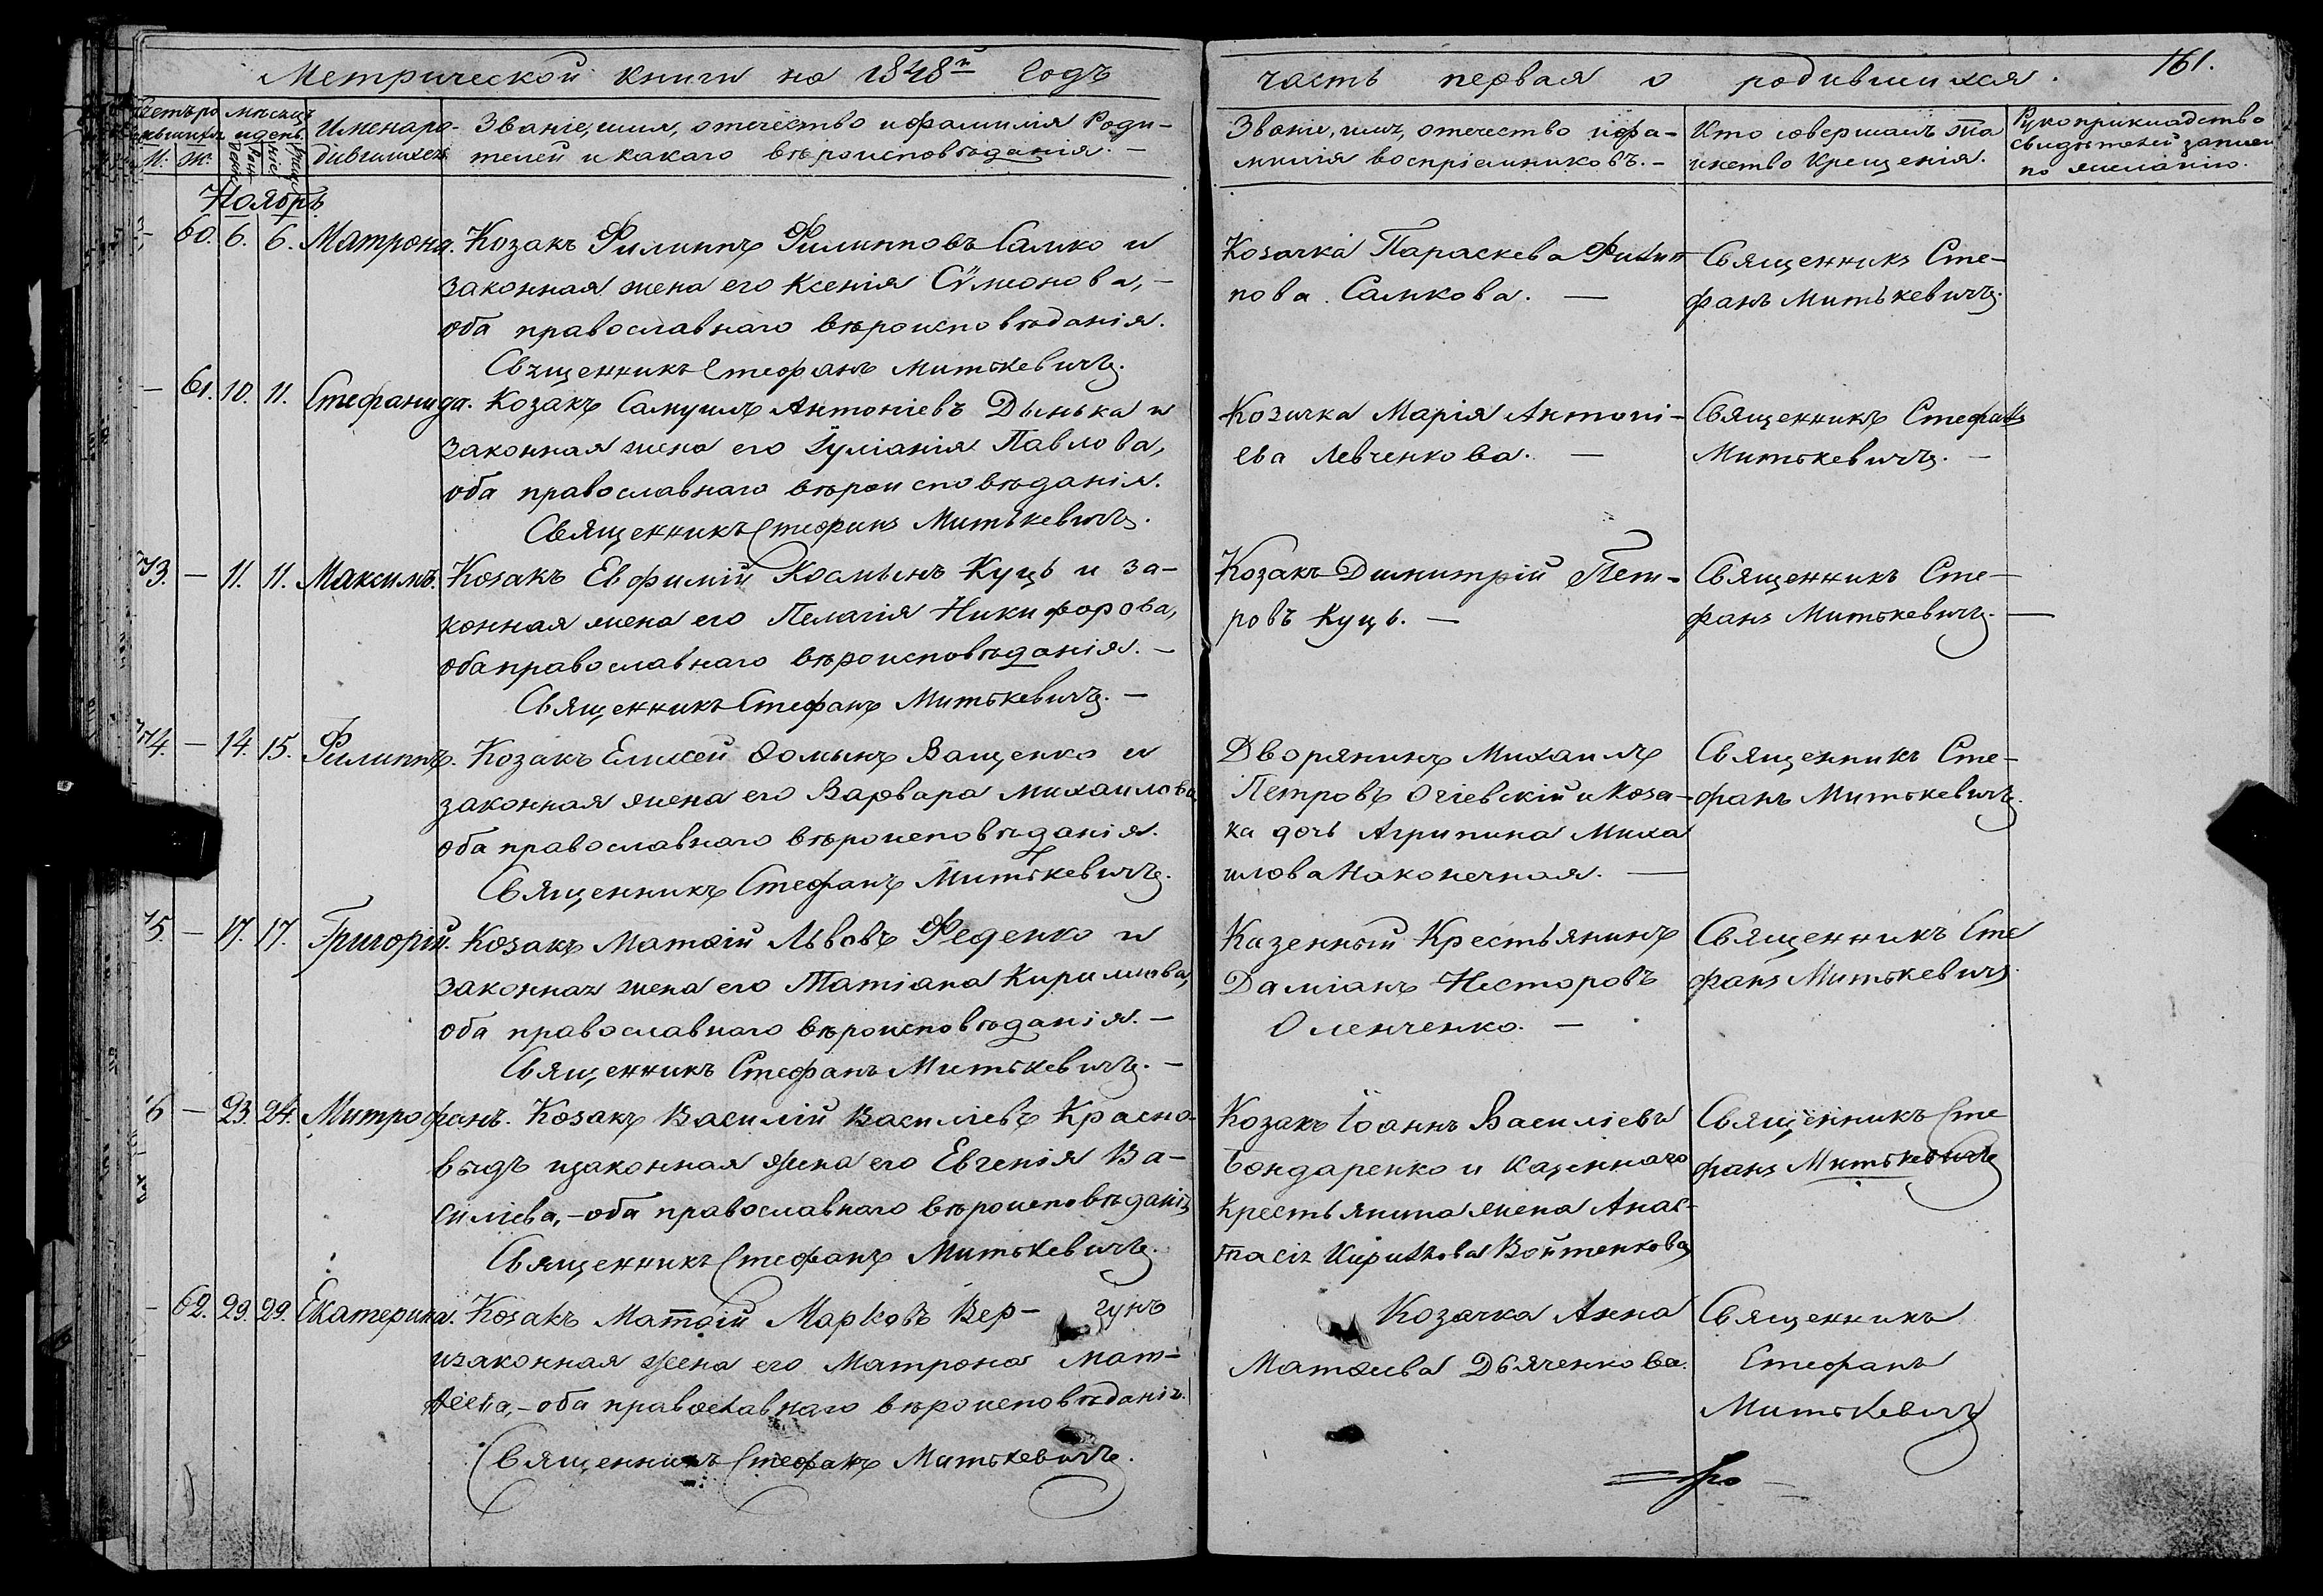 Метрической книги на 1848й годъ
часть первая о родившихся.
161.
Мѣсяцъ и день
М. Ж.
Имена ро-
дившихся
Званіе, имя, отечество и фамилія Роди-
телей и какаго вѣроисповѣданія. —
Званіе, имя, отечество и фа-
милія воспріемниковъ. —
Кто совершалъ таи
инство Крещенія.
Рукоприкладство
свидѣтелей записи
по желанію.
Ноябрь
— 60. 6. 6. Матрона. Козакъ Филиппъ Филипповъ Самко и
законная жена его Ксенія Сѵмеонова, —
оба православнаго вѣроисповѣданія.
Священникъ Стефанъ Митькевичъ.
Козачка Параскева Филип
пова Самкова. —
Священникъ Сте-
фанъ Митькевичъ.
— 61. 10. 11. Стефанида. Козакъ Самуилъ Антоніевъ Дынька и
законная жена его Іуліанія Павлова,
оба православнаго вѣроисповѣданія.
Священникъ Стефанъ Митькевичъ.
Козачка Марія Антоні-
ева Левченкова. —
Священникъ Стефанъ
Митькевичъ. —
73. — 11. 11. Максимъ. Козакъ Евфимій Косминъ Куць и за-
конная жена его Пелагія Никифорова,
оба православнаго вѣроисповѣданія. —
Священникъ Стефанъ Митькевичъ. —
Козакъ Димитрій Пет-
ровъ Куць. —
Священникъ Сте-
фанъ Митькевичъ. —
74. — 14. 15. Филиппъ. Козакъ Елисей Ѳоминъ Ващенко и
законная жена его Варвара Михаилова,
оба православнаго вѣроисповѣданія.
Священникъ Стефанъ Митькевичъ.
Дворянинъ Михаилъ
Петровъ Огіевскій и Коза-
ка дочь Агрипина Миха
илова Наконечная. —
Священникъ Сте-
фанъ Митькевичъ.
75. — 17. 17. Григорій. Козакъ Матѳій Львовъ Феденко и
законная жена его Татіана Кириллова,
оба православнаго вѣроисповѣданія. —
Священникъ Стефанъ Митькевичъ. —
Казенный Крестьянинъ
Даміанъ Несторовъ
Оленченко. —
Священникъ Сте
фанъ Митькевичъ.
6 — 23. 24. Митрофанъ. Козакъ Василій Василіевъ Красно-
выдъ и законная жена его Евгенія Ва-
силіева, — оба православнаго вѣроисповѣданія
Священникъ Стефанъ Митькевичъ.
Козакъ Іоаннъ Василіевъ
Бондаренко и казеннаго
Крестьянина жена Анас-
тасія Кирилова Войтенкова
Священникъ Сте
фанъ Митькевичъ
— 62. 29. 29. Екатерина. Козакъ Матѳій Марковъ Вер- гунъ
и законная жена его Матрона Мат-
ѳеева, — оба православнаго вѣроисповѣданія.
Священникъ Стефанъ Митькевичъ.
Козачка Анна
Матѳиева Дьяченкова.
Священникъ
Стефанъ
Митькевичъ